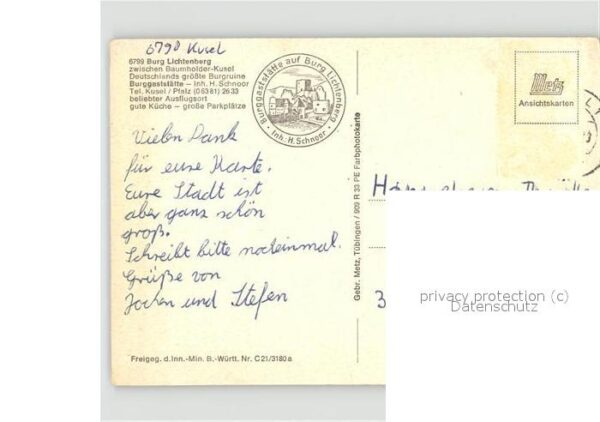 6790 Kusel
6799 Burg Lichtenberg
zwischen Baumholder-Kusel
Deutschlands größte Burgruine
Burggaststätte – Inh. H. Schnoor
Tel. Kusel / Pfalz (06381) 2633
beliebter Ausflugsort
gute Küche – große Parkplätze
Burggaststätte auf Burg Lichtenberg
Inh. H. Schnoor
Metz
Ansichtskarten
Vielen Dank
für eure Karte.
Eure Stadt ist
aber ganz schön
groß.
Schreibt bitte nocheinmal.
Grüße von
Jochen und Stefen
Gebr. Metz, Tübingen / 909 R 33 PE Farbphotokarte
3
privacy protection (c)
Datenschutz
Freigeg. d. Inn.-Min. B.-Württ. Nr. C 21/3180 a